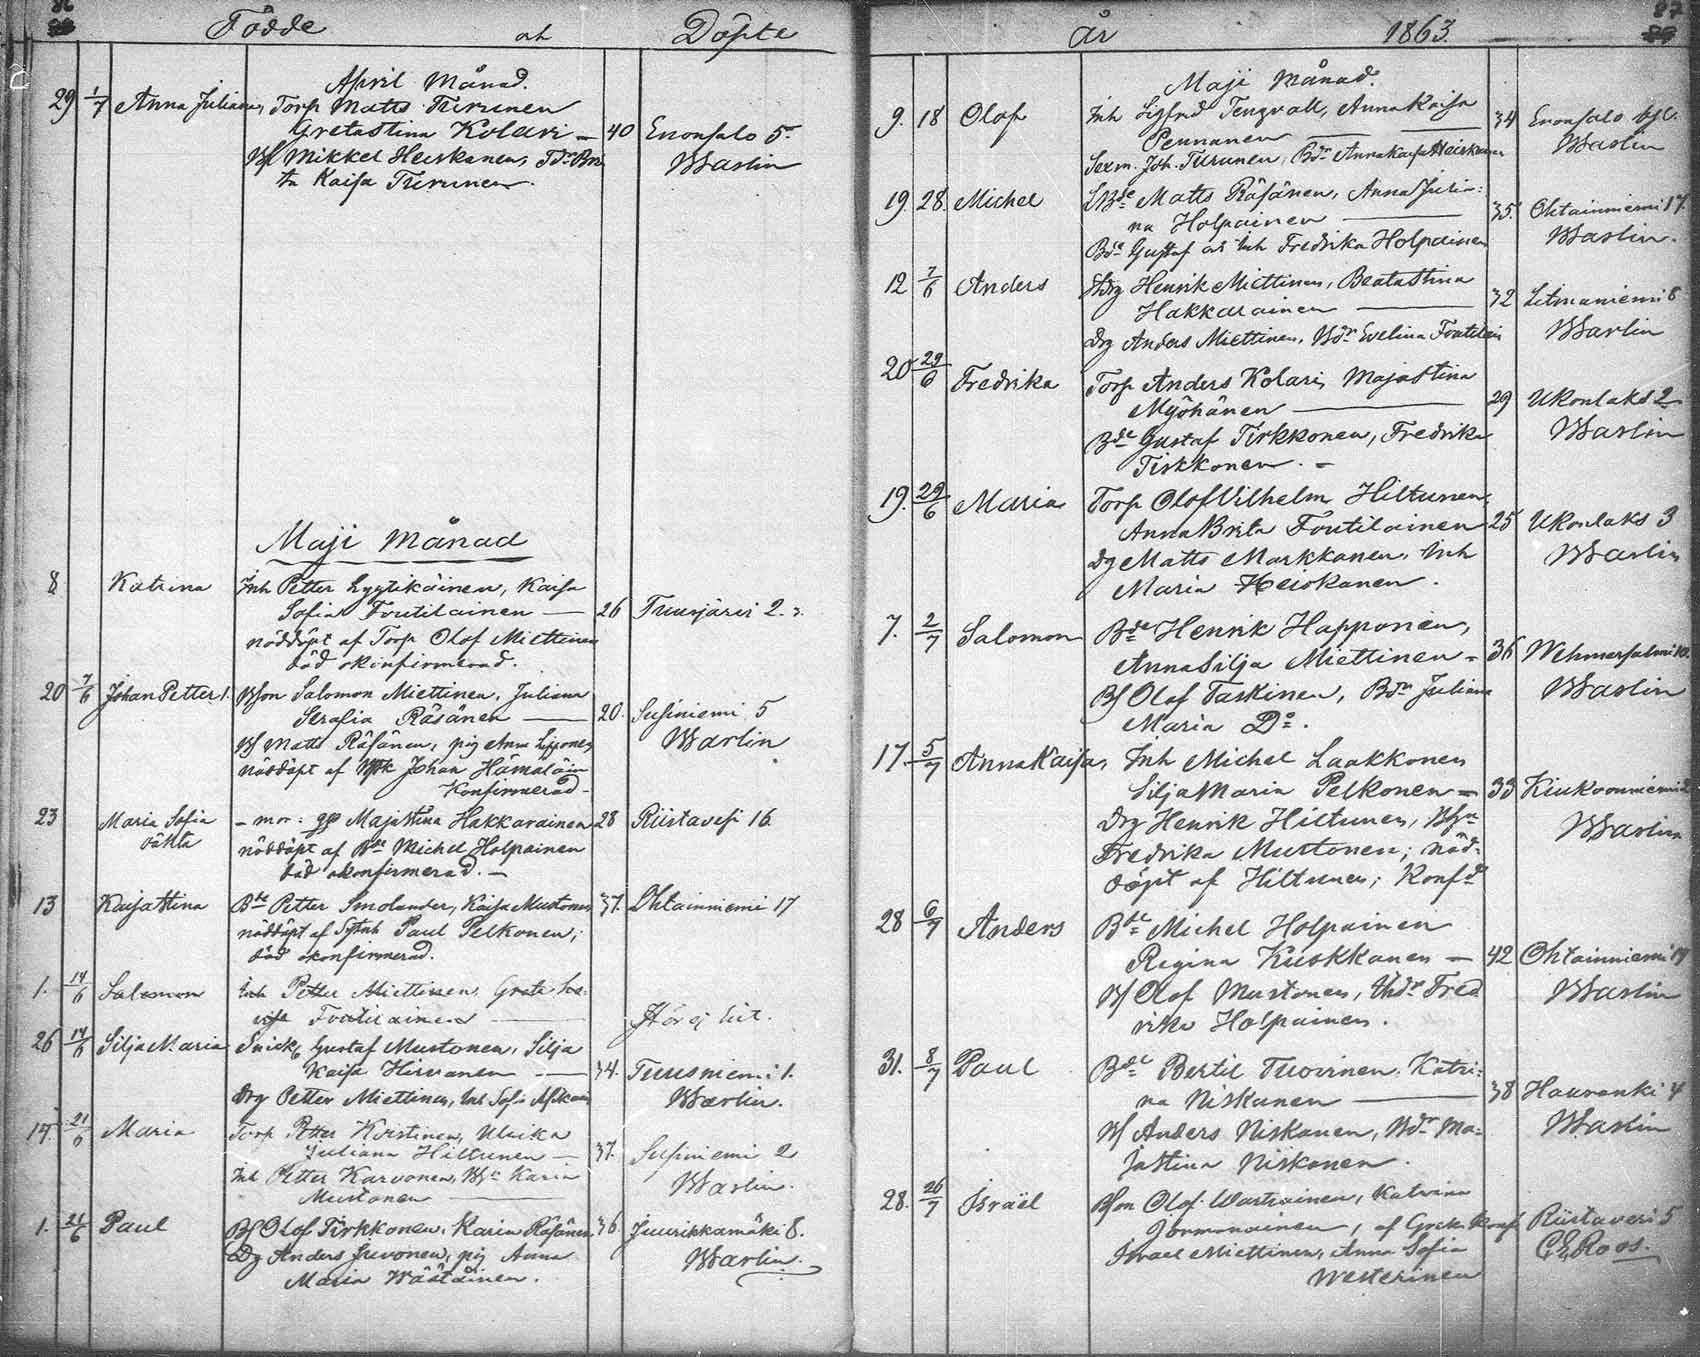 86
Födde och Döpte
April Månad.
29 1/7 Anna Juliana, Torp Matts Turunen
Greta Stina Kolari — 40 Enonsalo 5.
Mikkel Heiskanen,
ta Kaisa Turunen. Warlin
Maji Månad
8 Katrina Inh Petter Lyytikäinen, Kaisa
Sofia Foutilainen — 26 Tuusjärvi 2.
nöddöpt af Torp Olof Miettinen
död okonfirmerad.
20 7/6 Johan Petter Bson Salomon Miettinen, Juliana
Serafia Räsänen — 20. Susiniemi 5
Matts Räsänen, pig Anna Lipponen Warlin
nöddöpt af Johan Hämäläin
Konfirmerad
23 Maria Sofia — mor: Maja Stina Hakkarainen 28 Riistavesi 16.
oäkta nöddöpt af Bde Michel Holpainen
död okonfirmerad. —
13 Kaisa Stina Bde Petter Smolander, Kaisa Mustonen 37. Ohtainniemi 17
nöddöpt af Paul Pelkonen;
död okonfirmerad.
1. 14/6 Salomon Inh Petter Miettinen, Greta Lo-
visa Foutilainen — Hör ej hit.
26 14/6 Silja Maria Snick. Gustaf Mustonen, Silja
Kaisa Hirvonen — 34. Tuusniemi 1.
Drg Petter Miettinen, Inh Sofia Warlin.
14. 21/6 Maria Torp Petter Korstinen, Ulrika
Juliana Hiltunen — 37. Susiniemi 2
Inh Petter Karvonen, Karin Warlin.
Mustonen —
1. 24/6 Paul Bf Olof Tirkkonen, Karin Räsänen 36. Juurikkamäki 8.
Dg Anders Juvonen, pig Anna Warlin.
Maria Wästäinen.
87
år 1863.
Maji Månad.
9. 18 Olof Inh Sigfrid Tengvall, Anna Kaisa
Pennanen — 34 Enonsalo
Sexm. Joh. Turunen, Bdr Anna Kaisa Heiskanen Warlin
19. 28. Michel Bde Matts Räsänen, Anna Juria-
na Holpainen — 35. Ohtainniemi 17.
Bde Gustaf och Inh Fredrika Holpainen Warlin.
12 7/6 Anders Drg Henrik Miettinen, Beata Stina
Hakkarainen — 32 Litmaniemi 8
Drg Anders Miettinen, Bdr Evelina Warlin
20 29/6 Fredrika Torp Anders Kolari, Maja Stina
Myöhänen — 29 Ukonlaks 2
Bde Gustaf Tirkkonen, Fredrika Warlin
Tirkkonen. —
19. 29/6 Maria Torp Olof Vilhelm Hiltunen,
Anna Brita Foutilainen 25 Ukonlaks 3
Dg Matts Markkanen, Inh Warlin
Maria Heiskanen.
7. 2/7 Salomon Bde Henrik Happonen,
Anna Silja Miettinen — 36 Wehmersalmi 10.
Bf Olof Taskinen, Bdr Juliana Warlin
Maria Do.
17. 5/7 Anna Kaisa, Inh Michel Laakkonen
Silja Maria Pelkonen — 33 Kiukoonniemi 2
Drg Henrik Hiltunen, Warlin
Fredrika Mustonen; nöd-
döpt af Hiltunen; Konfd
28 6/7 Anders Bde Michel Holpainen
Regina Kuskkanen — 42 Ohtainniemi 17
Bf Olof Mustonen, Bdr Fred Warlin
rika Holpainen.
31. 8/7 Paul Bde Bertil Tuovinen, Katri-
na Niskanen — 38 Hauranki 4
Bf Anders Niskanen, Bdr Ma- Warlin
ja Stina Niskanen.
28. 26/7 Israël Bson Olof Wartiainen, Katrina
Jormanainen, af Grek. konf. Riistavesi 5
Israel Miettinen, Anna Sofia CERoos.
Westerinen